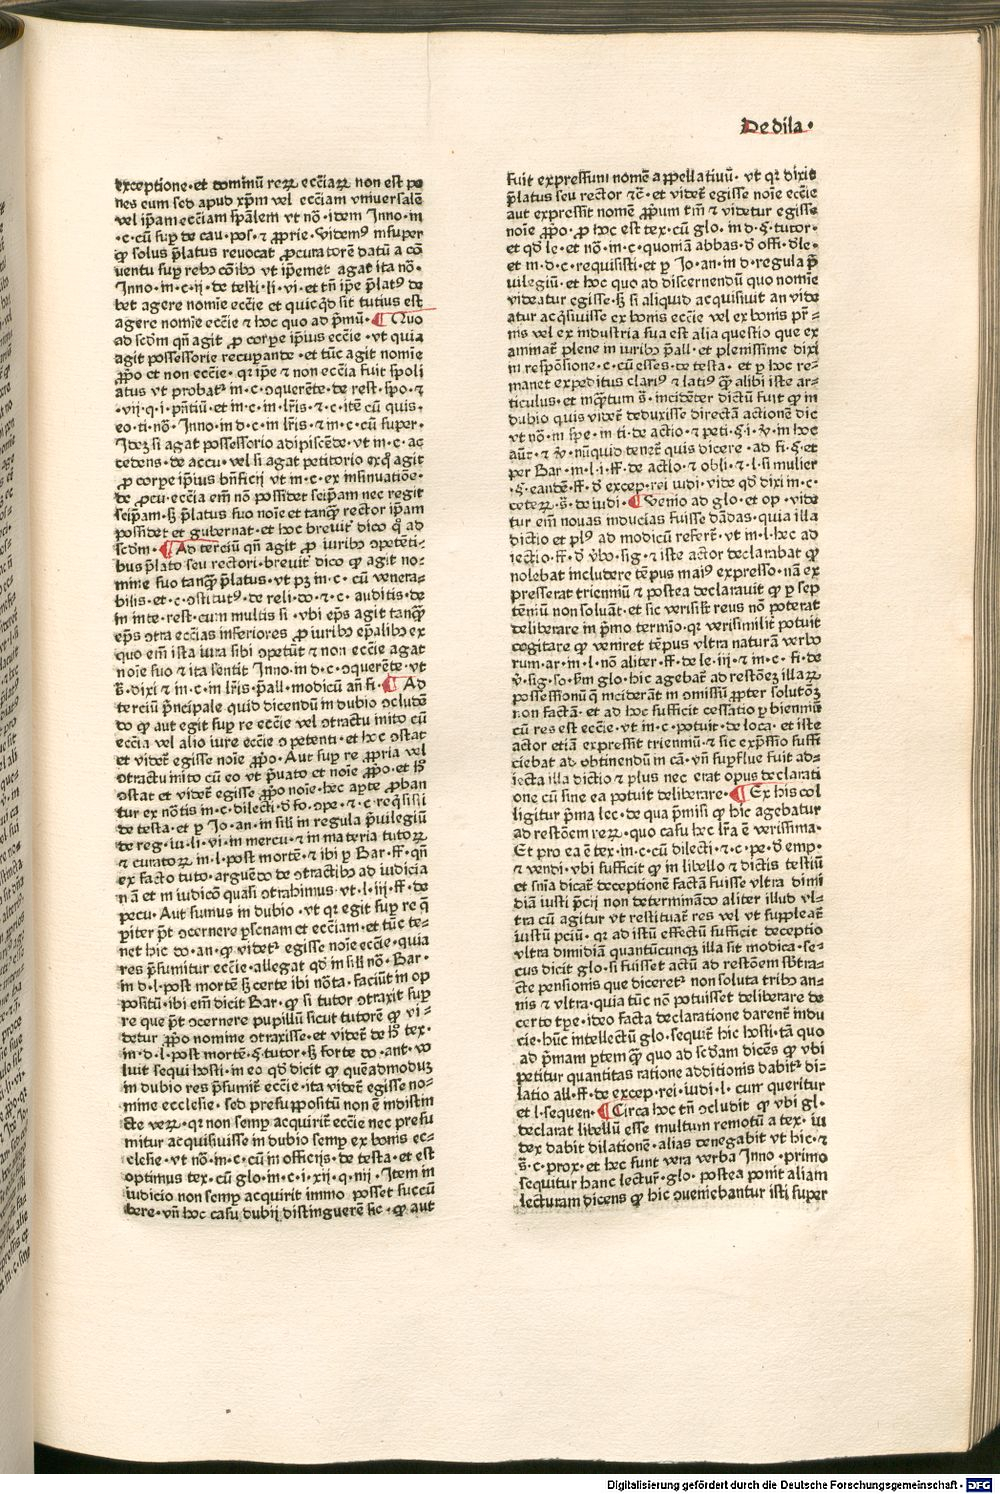 De dila·
exceptione·et dominū reꝝ ecc̄iaꝝ non est pe
nes eum sed apud xp̄m vel ecc̄iam vniuersalē
vel ip̄am ecc̄iam sp̄alem vt nō·idem Inno·in
·c·cū suꝑ de cau·pos·⁊ ꝓprie·Videmꝰ insuper
ꝙ solus p̄latus reuocat ꝓcuratorē datū a cō
uentu suꝑ rebꝫ cōibꝫ vt ip̄emet agat ita nō·
Inno·in c·ij·de testi·li·vi·et tn̄ ip̄e p̄latꝰ de
bet agere nomīe ecc̄ie et quicq̇d sit tutius est
agere nomīe ecc̄ie ⁊ hoc quo ad p̄mū· ¶ Quo
ad scd̄m qn̄ agit ꝓ corꝑe ip̄ius ecc̄ie·vt quia
agit possessorie recuꝑande·et tūc agit nomīe
ꝓpō et non ecc̄ie·qr ip̄e ⁊ non ecc̄ia fuit spoli
atus vt probatꝰ in·c·ɔquerēte·de rest·spo·⁊
·vij·q·i·pn̄tiū·et in·c·in lr̄is·⁊·c·itē cū quis·
eo·ti·nō·Inno·in d·c·in lr̄is·⁊ in·c·cū super·
Idēꝫ si agat possessorio adipiscēde·vt in·c·ac
cedens·de accu·vel si agat petitorio exq̇ agit
ꝓ corꝑe ip̄ius bn̄ficij vt in·c·ex insinuatiōe·
de ꝓcu·ecc̄ia em̄ nō possidet seip̄am nec regit
seip̄am·sꝫ p̄latus suo noīe et tanqꝫ rector ip̄am
possidet et gubernat·et hoc breuit̄ dico ꝙ ad
scd̄m· ¶ Ad terciū qn̄ agit ꝓ iuribꝫ ɔpetēti·
bus p̄lato seu rectori·breuit̄ dico ꝙ agit no·
mine suo tanqꝫ p̄latus·vt pꝫ in·c·cū venera·
bilis·et·c·ɔstitutꝰ·de reli·do·⁊·c·auditis·de
in inte·rest·cum multis si·vbi ep̄s agit tanqꝫ
ep̄s ɔtra ecc̄ias inferiores ꝓ iuribꝫ ep̄alibꝫ ex
quo em̄ ista iura sibi ɔpetūt ⁊ non ecc̄ie agat
noīe suo ⁊ ita sentit Inno·in d·c·ɔquerēte·vt
s̄·dixi ⁊ in·c·in lr̄is·p̄all·modicū an̄ fi· ¶ Ad
terciū p̄ncipale quid dicendū in dubio ɔcludē
do ꝙ aut egit suꝑ re ecc̄ie vel ɔtractu inito cū
ecc̄ia vel alio iure ecc̄ie ɔpetenti·et hoc ɔstat
et videt̄ egisse noīe ꝓpō·Aut suꝑ re ꝓpria vel
ɔtractu inito cū eo vt p̄uato et noīe ꝓpō·et H̄
ɔstat et videt̄ egisse ꝓpō noīe·hec aꝑte ꝓban
tur ex nōtis in·c·dilecti·ð fo·ɔpe·⁊·c·req̇sisti
de testa·et ꝑ Jo·an·in sili in regula p̄uilegiū
de reg·iu·li·vi·in mercu·⁊ in materia tutoꝝ
⁊ curatoꝝ in·l·post mortē·⁊ ibi ꝑ Bar·ff·qn̄
ex facto tuto·arguēdo de ɔtractibꝫ ad iudicia
nā et in iudicō quasi ɔtrahimus·vt·l·iii·ff·de
pecu·Aut sumus in dubio·vt qr egit suꝑ re q̄
ꝑiter p̄t ɔcernere ꝑsonam et ecc̄iam·et tūc te·
net hic do·an·ꝙ videtꝰ egisse noīe ecc̄ie·quia
res p̄sumitur ecc̄ie·allegat qd̄ in sili nō·Bar·
in d·l·post mortē sꝫ certe ibi nōta·faciūt in op
positū·ibi em̄ dicit Bar·ꝙ si tutor ɔtraxit suꝑ
re que p̄t ɔcernere pupillū sicut tutorē ꝙ vi·
detur ꝓpō nomine ɔtraxisse·et videt̄ de H̄ tex·
in·d·l·post mortē·§·tutor·sꝫ forte do·ant·vo
luit sequi hosti·in eo qd̄ dicit ꝙ queadmodūꝫ
in dubio res p̄sumit̄ ecc̄ie·ita videt̄ egisse no·
mine ecclesie·sed presuppositū non ē indistin
cte veꝝ·qr non semꝑ acquirit̄ ecc̄ie nec presu
mitur acquisiuisse in dubio semꝑ ex bonis ec·
clesie·vt nō·in·c·cū in officijs·de testa·et est
optimus tex·cū glo·in·c·i·xij·q·iiij·Item in
iudicio non semꝑ acquirit immo posset succū
bere·vn̄ hoc casu dubij distinguerē sic·ꝙ aut
fuit expressum nomē appellatiuū·vt qr dixit
p̄latus seu rector ⁊c̄·et videt̄ egisse noīe ecc̄ie
aut expressit nomē ꝓprium tm̄ ⁊ videtur egisse
noīe ꝓpō·ꝑ hoc est tex·cū glo·in d·§·tutor·
et qd̄ le·et nō·in·c·quoniā abbas·ð offi·ðle·
et in·d·c·requisisti·et ꝑ Jo·an·in d·regula p̄
uilegiū·et hoc quo ad discernendū quo nomīe
videatur egisse·sꝫ si aliquid acquisiuit an vide
atur acq̇siuisse ex bonis ecc̄ie vel ex bonis pr̄·
nis vel ex industria sua est alia questio que ex
aminat̄ plene in iuribꝫ p̄all·et plenissime dixi
in respōsione·c·cū esses·de testa·et ꝑ hoc re·
manet expeditus clariꝰ ⁊ latiꝰ qꝫ alibi iste ar·
ticulus·et inq̄ntum s̄·incidēter dictū fuit ꝙ in
dubio quis videt̄ deduxisse directā actionē dic
vt nō·in spe·in ti·de actio·⁊ peti·§·i·ꝟ·in hoc
aūt·⁊ ꝟ·nūquid tenet̄ quis dicere·ad fi·§·et
per Bar·in·l·i·ff·de actio·⁊ obli·⁊·l·si mulier
·§·eandē·ff·ð excep·rei iudi·vide qd̄ dixi in·c·
ceteꝝ·s̄·de iudi· ¶ Venio ad glo·et op·vide
tur em̄ nouas inducias fuisse dādas·quia illa
dictio et plꝰ ad modicū refert̄·vt in·l·hec ad
iectio·ff·ð ꝟbo·sig·⁊ iste actor declarabat ꝙ
nolebat includere tēpus maiꝰ expresso·nā ex
presserat trienniū ⁊ postea declarauit ꝙ ꝑ sep
tēniū non soluāt·et sic verisil̄r reus nō poterat
deliberare in p̄mo termīo·qr verisimilit̄ potuit
cogitare ꝙ veniret tēpus vltra naturā verbo
rum·ar·in·l·nō aliter·ff·de le·iij·⁊ in·c·fi·de
ꝟ·sig·so·ẜm glo·hic agebat̄ ad restōeꝫ illaꝝ
possessionū q̄ inciderāt in omissū ꝓpter solutōꝫ
non factā·et ad hoc sufficit cessatio ꝑ bienniū
cū res est ecc̄ie·vt in·c·potuit·de loca·et iste
actor etiā expressit trienniū·⁊ sic exp̄ssio suffi
ciebat ad obtinendū in cā·vn̄ suꝑflue fuit ad·
iecta illa dictio ⁊ plus nec erat opus declarati
one cū sine ea potuit deliberare· ¶ Ex his col
ligitur p̄ma lec·de qua p̄misi ꝙ hic agebatur
ad restōem reꝝ·quo casu hec lr̄a ē verissima·
Et pro ea ē tex·in·c·cū dilecti·⁊·c·pe·ð emp·
⁊ vendi·vbi sufficit ꝙ in libello ⁊ dictis testiū
et sn̄ia dicat̄ deceptionē factā fuisse vltra dimi
diā iusti p̄cij non determinādo aliter illud vl·
tra cū agitur vt restituat̄ res vel vt suppleat̄
iustū p̄ciū·qr ad istū effectū sufficit deceptio
vltra dimidiā quantūcunqꝫ illa sit modica·se·
cus dicit glo·si fuisset actū ad restōem sb̄tra·
cte pensionis que diceretꝰ non soluta tribꝫ an·
nis ⁊ vltra·quia tūc nō potuisset deliberare de
certo tꝑe·ideo facta declaratione darent̄ indu
cie·hūc intellectū glo·sequit̄ hic hosti·tā quo
ad p̄mam ꝑtem qꝫ quo ad scd̄am dicēs ꝙ vbi
petitur quantitas ratione additionis dabitꝰ di·
latio all·ff·de excep·rei·iudi·l·cum queritur
et·l·sequen· ¶ Circa hoc tn̄ ɔcludit ꝙ vbi gl·
declarat libellū esse multum remotū a tex·iu
dex dabit dilationē·alias denegabit vt hic·⁊
s̄·c·prox·et hec sunt vera verba Inno·primo
sequitur hanc lectur̄·glo·postea ponit aliam
lecturam dicens ꝙ hic ɔueniebantur isti super
Digitalisierung gefördert durch die Deutsche Forschungsgemeinschaft - DFG